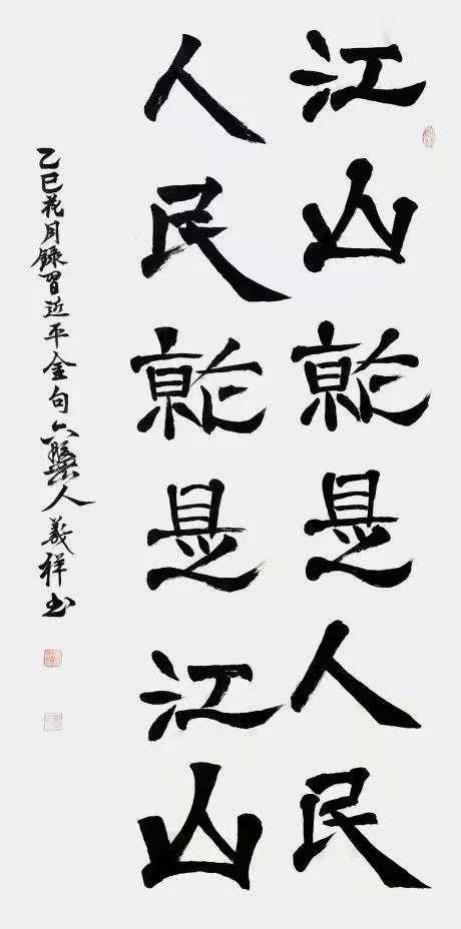 江山就是人民
人民就是江山
乙巳花月錄習近平金句六槃人義祥书